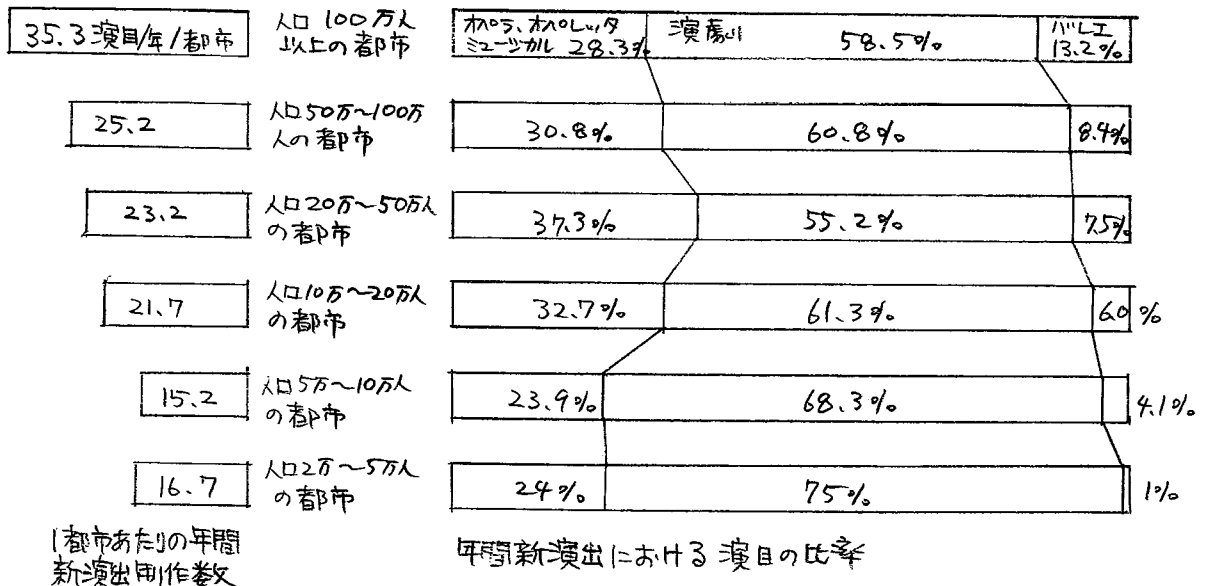 35.3演目/年/都市
人口100万人
以上の都市
オペラ、オペレッタ
ミュージカル 28.3%
演劇 58.5%
バレエ
13.2%
25.2
人口50万~100万
人の都市
30.8%
60.8%
8.4%
23.2
人口20万~50万人
の都市
37.3%
55.2%
7.5%
21.7
人口10万~20万人
の都市
32.7%
61.3%
6.0%
15.2
人口5万~10万人
の都市
23.9%
68.3%
4.1%
16.7
人口2万~5万人
の都市
24%
75%
1%
1都市あたりの年間
新演出制作数
年間新演出における演目の比率